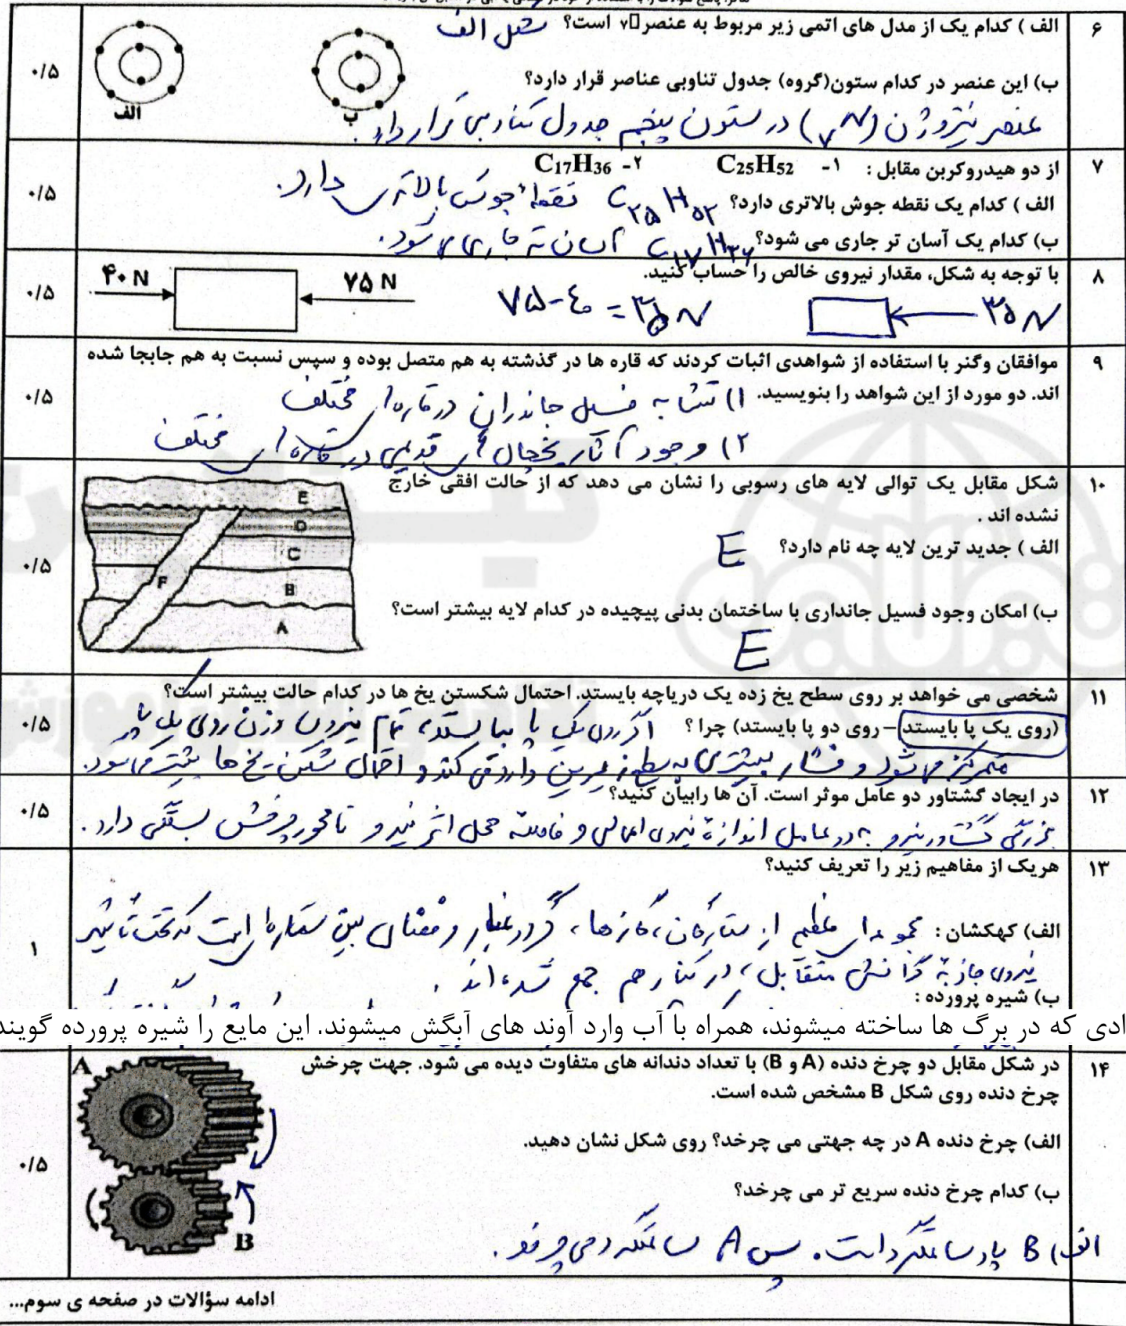 ۶ الف ) کدام یک از مدل های اتمی زیر مربوط به عنصر ۷ است؟ شکل الف
ب) این عنصر در کدام ستون(گروه) جدول تناوبی عناصر قرار دارد؟
الف
ب
۰/۵
عنصر نیتروژن (۷N) در ستون پنجم جدول تناوبی قرار دارد.
۷ از دو هیدروکربن مقابل : ۱- C25H52 ۲- C17H36
الف ) کدام یک نقطه جوش بالاتری دارد؟ C۲۵H۵۲ نقطه جوش بالاتری دارد.
ب) کدام یک آسان تر جاری می شود؟ C۱۷H۳۶ آسان تر جاری می شود.
۰/۵
۸ با توجه به شکل، مقدار نیروی خالص را حساب کنید.
۴۰ N
۷۵ N
۷۵-۴۰ = ۳۵ N
۳۵ N
۰/۵
۹ موافقان وگنر با استفاده از شواهدی اثبات کردند که قاره ها در گذشته به هم متصل بوده و سپس نسبت به هم جابجا شده
اند. دو مورد از این شواهد را بنویسید. ۱) تشابه فسیل جانداران در قاره های مختلف
۲) وجود آثار یخچال های قدیمی در قاره های مختلف
۰/۵
۱۰ شکل مقابل یک توالی لایه های رسوبی را نشان می دهد که از حالت افقی خارج
نشده اند .
الف ) جدید ترین لایه چه نام دارد؟ E
ب) امکان وجود فسیل جانداری با ساختمان بدنی پیچیده در کدام لایه بیشتر است؟
E
E
D
C
F
B
A
۰/۵
۱۱ شخصی می خواهد بر روی سطح یخ زده یک دریاچه بایستد. احتمال شکستن یخ ها در کدام حالت بیشتر است؟
(روی یک پا بایستد – روی دو پا بایستد) چرا ؟ اگر روی یک پا بایستد، تمام نیروی وزن روی یک پا
متمرکز می شود و فشار بیشتری به سطح زیرین وارد می کند و احتمال شکستن یخ ها بیشتر می شود.
۰/۵
۱۲ در ایجاد گشتاور دو عامل موثر است. آن ها رابیان کنید؟
بزرگی گشتاور نیرو به دو عامل اندازهٔ نیروی اعمالی و فاصله محل اثر نیرو تا محور چرخش بستگی دارد .
۰/۵
۱۳ هریک از مفاهیم زیر را تعریف کنید؟
الف) کهکشان : مجموعه ای عظیم از ستارگان، گازها، گرد و غبار و فضای بین ستاره ای است که تحت تأثیر
نیروی جاذبهٔ گرانش متقابل، در کنار هم جمع شده اند .
ب) شیره پرورده :
ادی که در برگ ها ساخته میشوند، همراه با آب وارد آوند های آبگش میشوند. این مایع را شیره پرورده گویند
۱
۱۴ در شکل مقابل دو چرخ دنده (A و B) با تعداد دندانه های متفاوت دیده می شود. جهت چرخش
چرخ دنده روی شکل B مشخص شده است.
الف) چرخ دنده A در چه جهتی می چرخد؟ روی شکل نشان دهید.
ب) کدام چرخ دنده سریع تر می چرخد؟
الف) B پادساعتگرد است. پس A ساعتگرد می چرخد .
A
B
۰/۵
ادامه سؤالات در صفحه ی سوم...